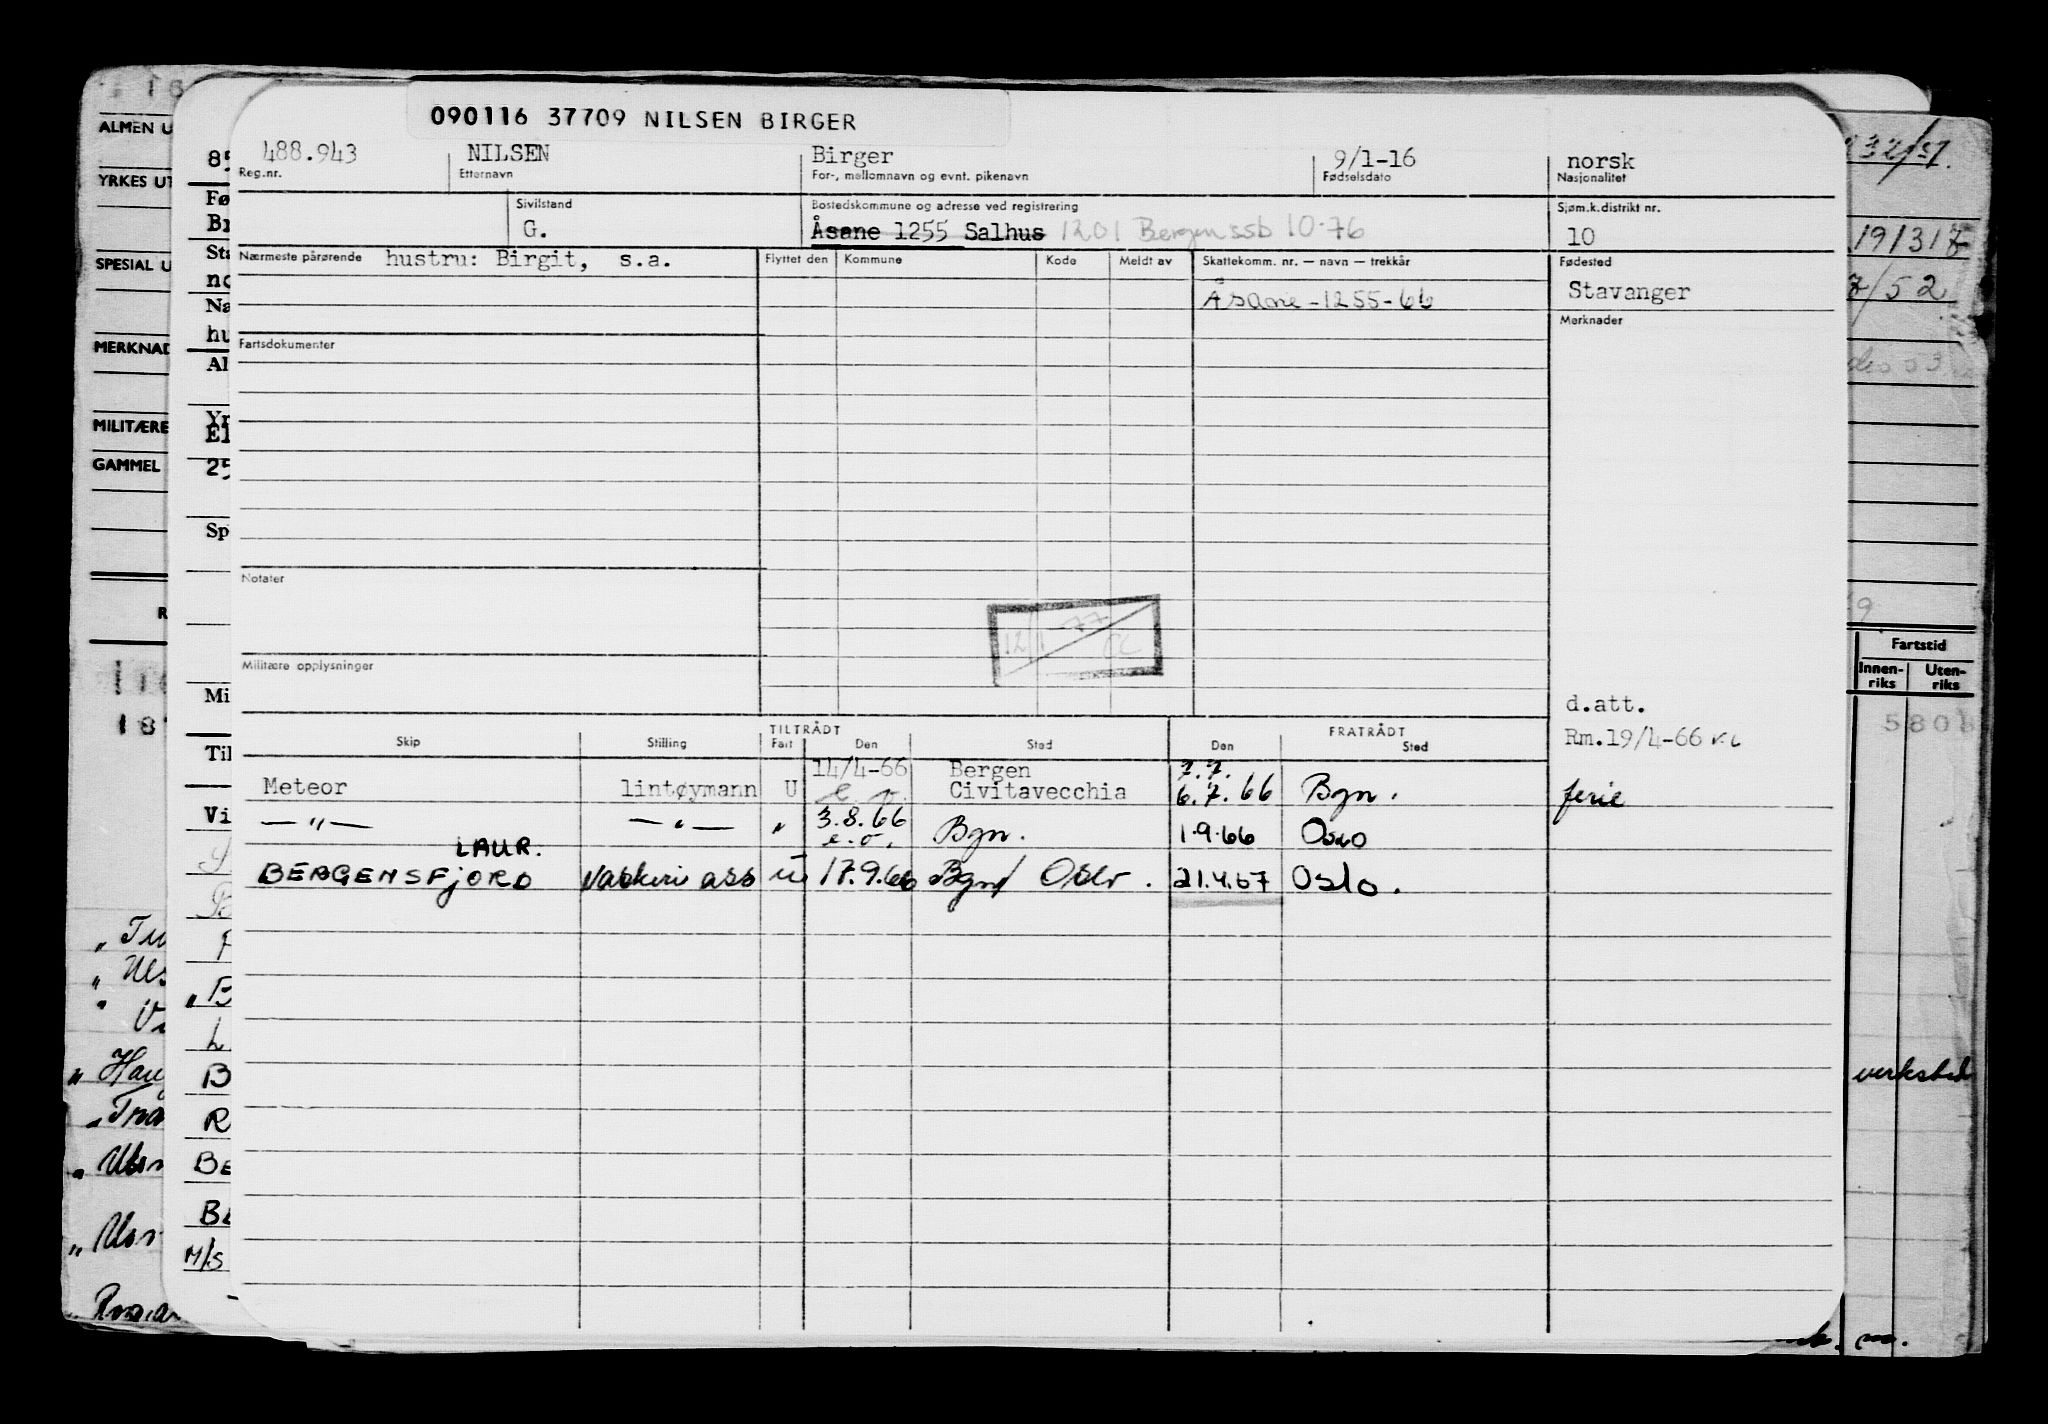 090116 37709 NILSEN BIRGER
488.943 NILSEN Birger 9/1-16 norsk
Reg.nr. Etternavn For-, mellomnavn og evnt. pikenavn Fødselsdato Nasjonalitet
Sivilstand Bostedskommune og adresse ved registrering Sjøm.k.distrikt nr.
G. Åsane 1255 Salhus 1201 Bergen ssb 10-76 10
Nærmeste pårørende hustru: Birgit, s.a. Flyttet den Kommune Kode Meldt av Skattekomm. nr. — navn — trekkår Fødested
Åsane-1255-66 Stavanger
Merknader
Fartsdokumenter
Notater
12/1 77
Militære opplysninger
d.att.
Rm.19/4-66
TILTRÅDT FRATRÅDT
Skip Stilling Fart Den Sted Den Sted
14/4-66 Bergen 7.7.
Meteor lintøymann U Civitavecchia 6.7.66 Bgn. ferie
— " — — " — " 3.8.66 Bgn. 1.9.66 Oslo
e.o.
LAUR.
BERGENSFJORD vaskeri ass U 17.9.66 Bgn/ Oslo. 21.4.67 Oslo.
ALMEN U
YRKES UT
SPESIAL U
MERKNAD
MILITÆRE
GAMMEL
85
Fø
Br
Sta
no
Na
hu
Al
Yr
El
25
Sp
Mi
Til
Vi
B
L
B
R
BE
M/S
32/51.
19/31
7/52
Fartstid
Innen-riks Uten-riks
580
verksted